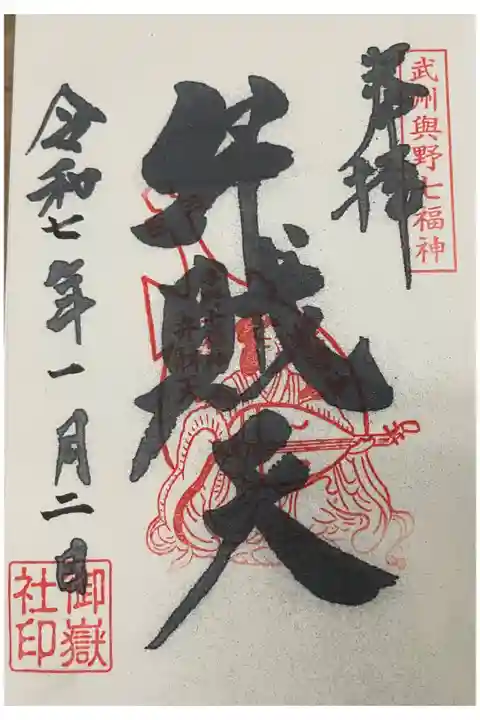 武州與野七福神
奉拝
弁賊天
令和七年一月二日
御嶽
社印